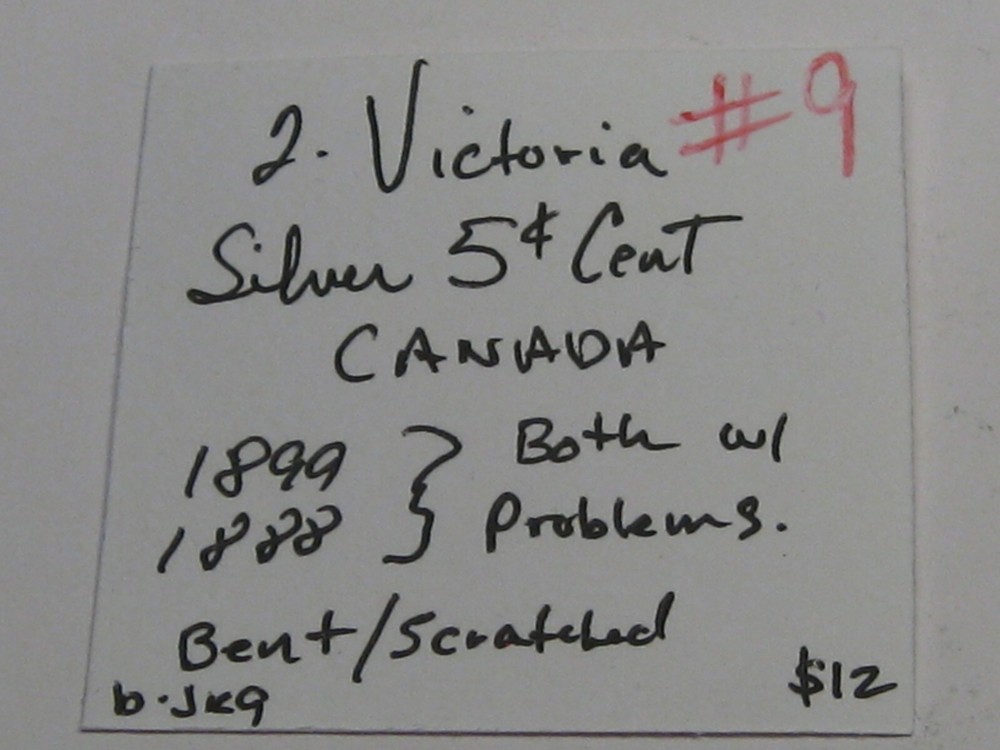 2. Victoria #9
Silver 5¢ Cent
CANADA
1899 } Both w/
1888 } Problems.
Bent/Scratched
b.JKG $12